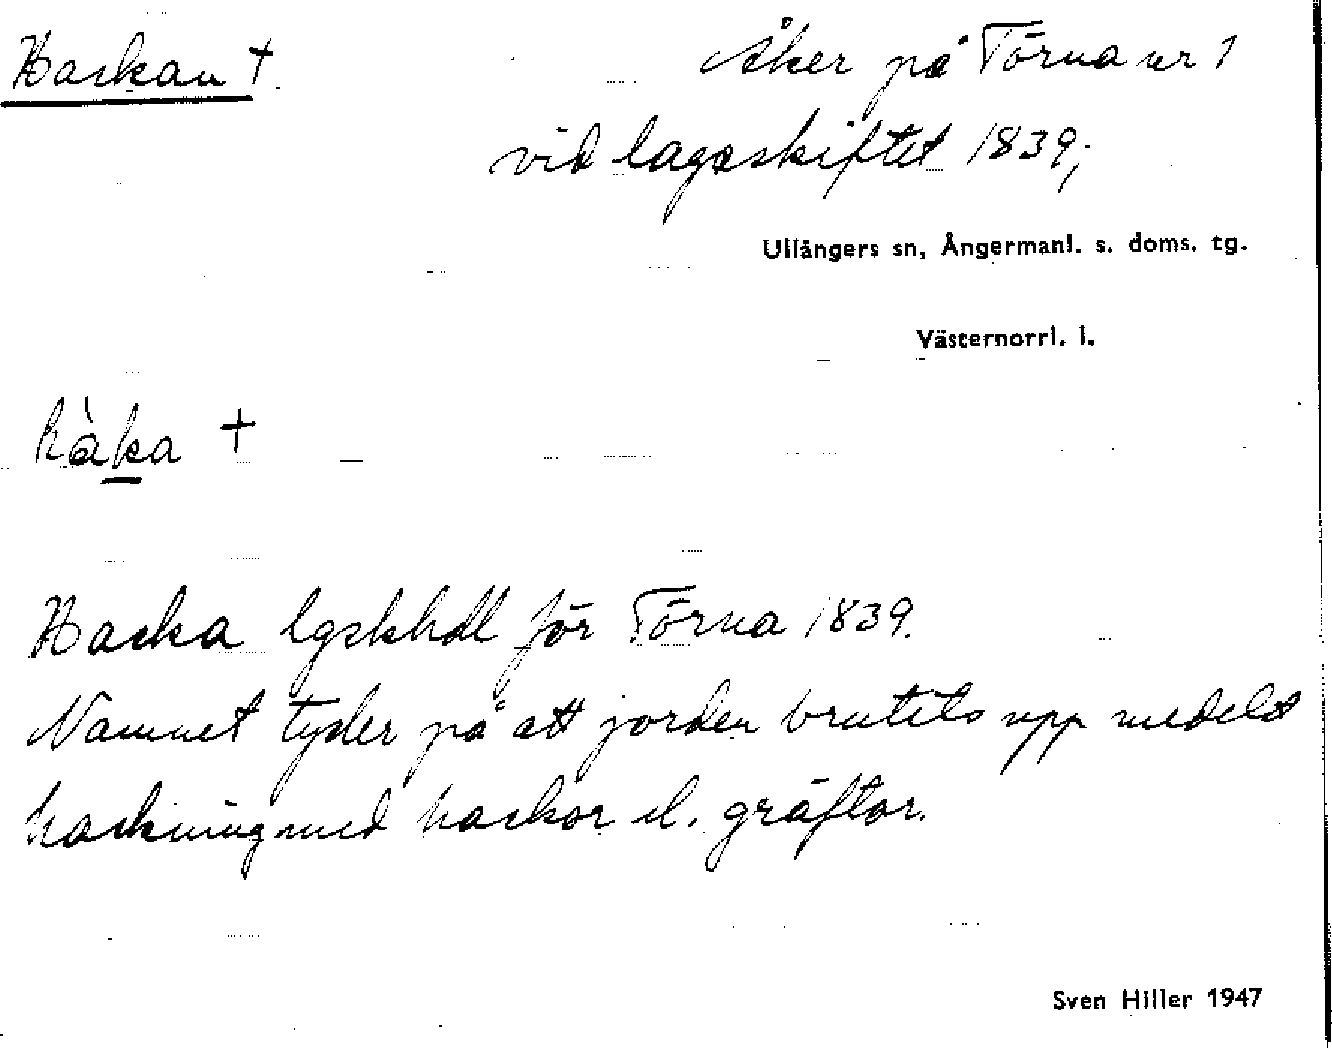 Hackan † Åker på Törna nr 1
vid lagaskiftet 1839;
Ullångers sn, Ångermanl. s. doms. tg.
Västernorrl. l.
hàka †
Hacka lgskhdl för Törna 1839.
Namnet tyder på att jorden brutits upp medelst
hackning med hackor el. gräftor.
Sven Hiller 1947